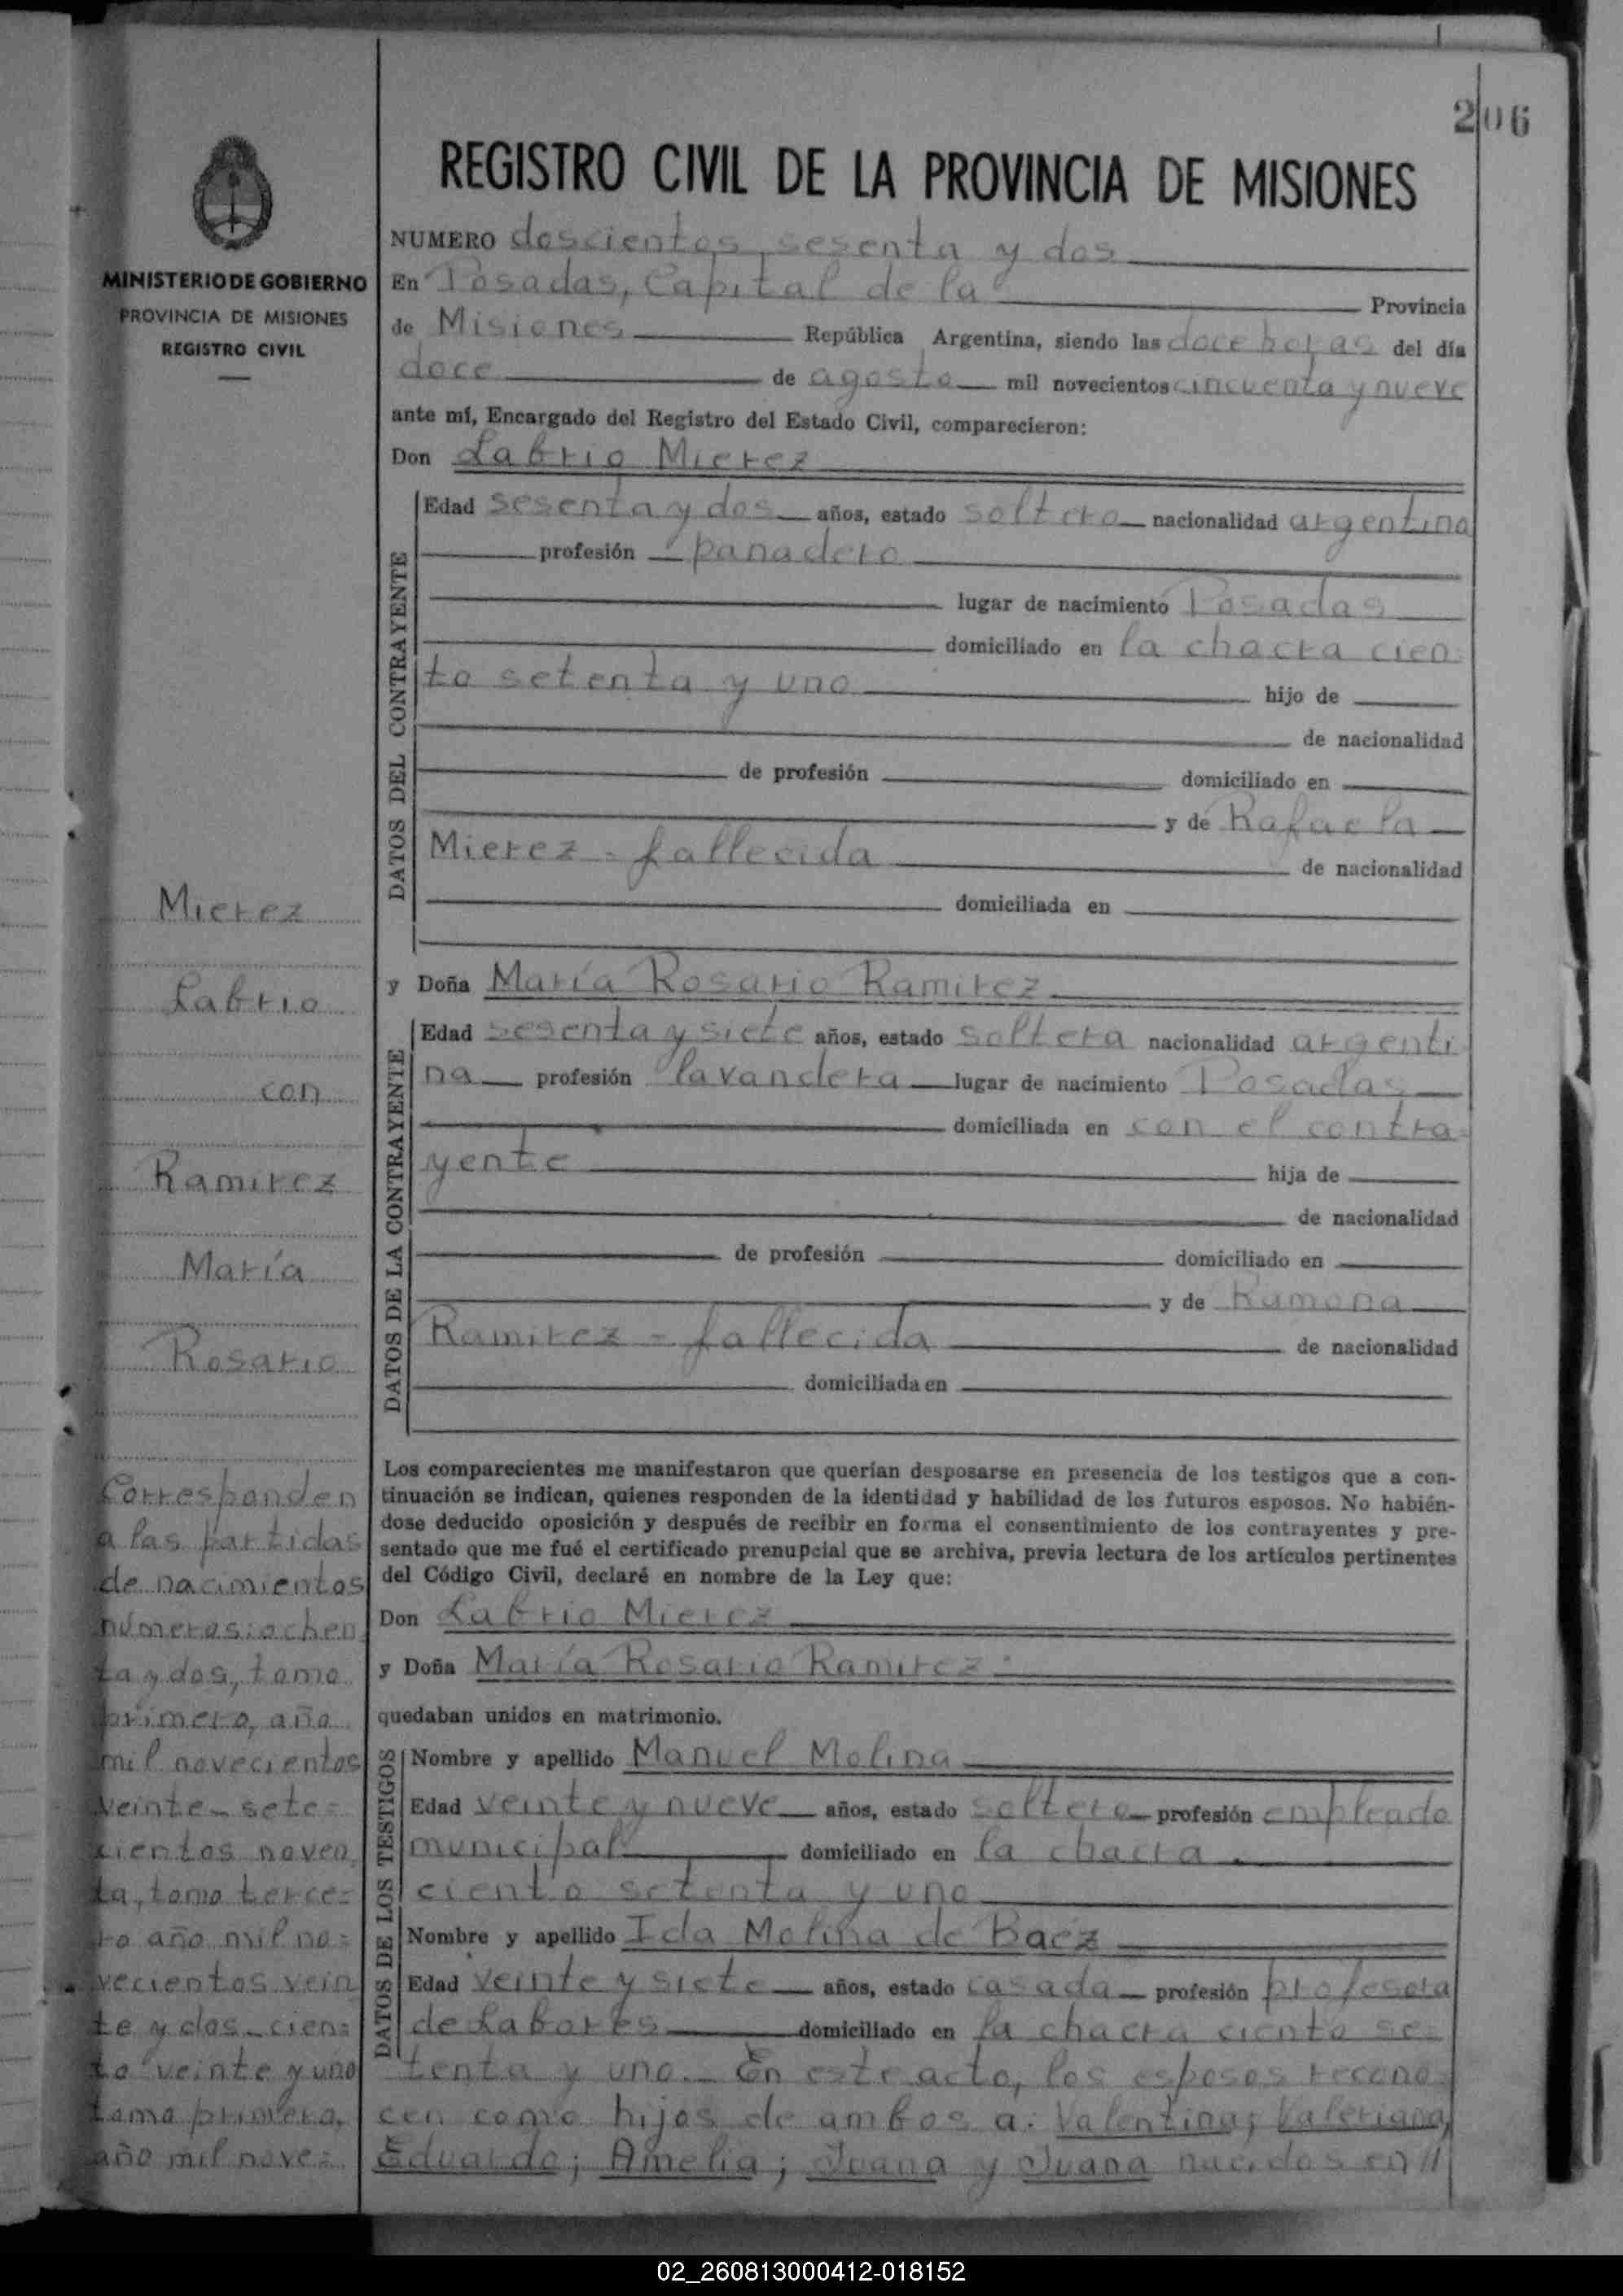 206
REGISTRO CIVIL DE LA PROVINCIA DE MISIONES
MINISTERIO DE GOBIERNO
PROVINCIA DE MISIONES
REGISTRO CIVIL
NUMERO doscientos sesenta y dos
En Posadas, Capital de la Provincia
de Misiones República Argentina, siendo las doce horas del día
doce de agosto mil novecientos cincuenta y nueve
ante mí, Encargado del Registro del Estado Civil, comparecieron:
Don Labrio Mierez
DATOS DEL CONTRAYENTE
Edad sesenta y dos años, estado soltero nacionalidad argentina
profesión panadero
lugar de nacimiento Posadas
domiciliado en la chacra cien
to setenta y uno hijo de
de nacionalidad
de profesión domiciliado en
y de Rafaela
Mierez - fallecida de nacionalidad
domiciliada en
y Doña María Rosario Ramirez
DATOS DE LA CONTRAYENTE
Edad sesenta y siete años, estado soltera nacionalidad argenti
na profesión lavandera lugar de nacimiento Posadas
domiciliada en con el contra=
yente hija de
de nacionalidad
de profesión domiciliado en
y de Ramona
Ramirez - fallecida de nacionalidad
domiciliada en
Los comparecientes me manifestaron que querían desposarse en presencia de los testigos que a con-
tinuación se indican, quienes responden de la identidad y habilidad de los futuros esposos. No habién-
dose deducido oposición y después de recibir en forma el consentimiento de los contrayentes y pre-
sentado que me fué el certificado prenupcial que se archiva, previa lectura de los artículos pertinentes
del Código Civil, declaré en nombre de la Ley que:
Don Labrio Mierez
y Doña María Rosario Ramirez
quedaban unidos en matrimonio.
DATOS DE LOS TESTIGOS
Nombre y apellido Manuel Molina
Edad veinte y nueve años, estado soltero profesión empleado
municipal domiciliado en la chacra
ciento setenta y uno
Nombre y apellido Ida Molina de Baez
Edad veinte y siete años, estado casada profesión profesora
de Labores domiciliado en la chacra ciento se=
tenta y uno. En este acto, los esposos recono=
cen como hijos de ambos a: Valentina; Valeriana,
Eduardo; Amelia; Juana y Juana nacidos en //
Mierez
Labrio
con
Ramirez
María
Rosario
Corresponden
a las partidas
de nacimientos
números: ochen
ta y dos, tomo
primero, año
mil novecientos
veinte - sete=
cientos noven
ta, tomo terce=
ro año mil no=
vecientos vein
te y dos - cien=
to veinte y uno
tomo primero,
año mil nove=
02_260813000412-018152